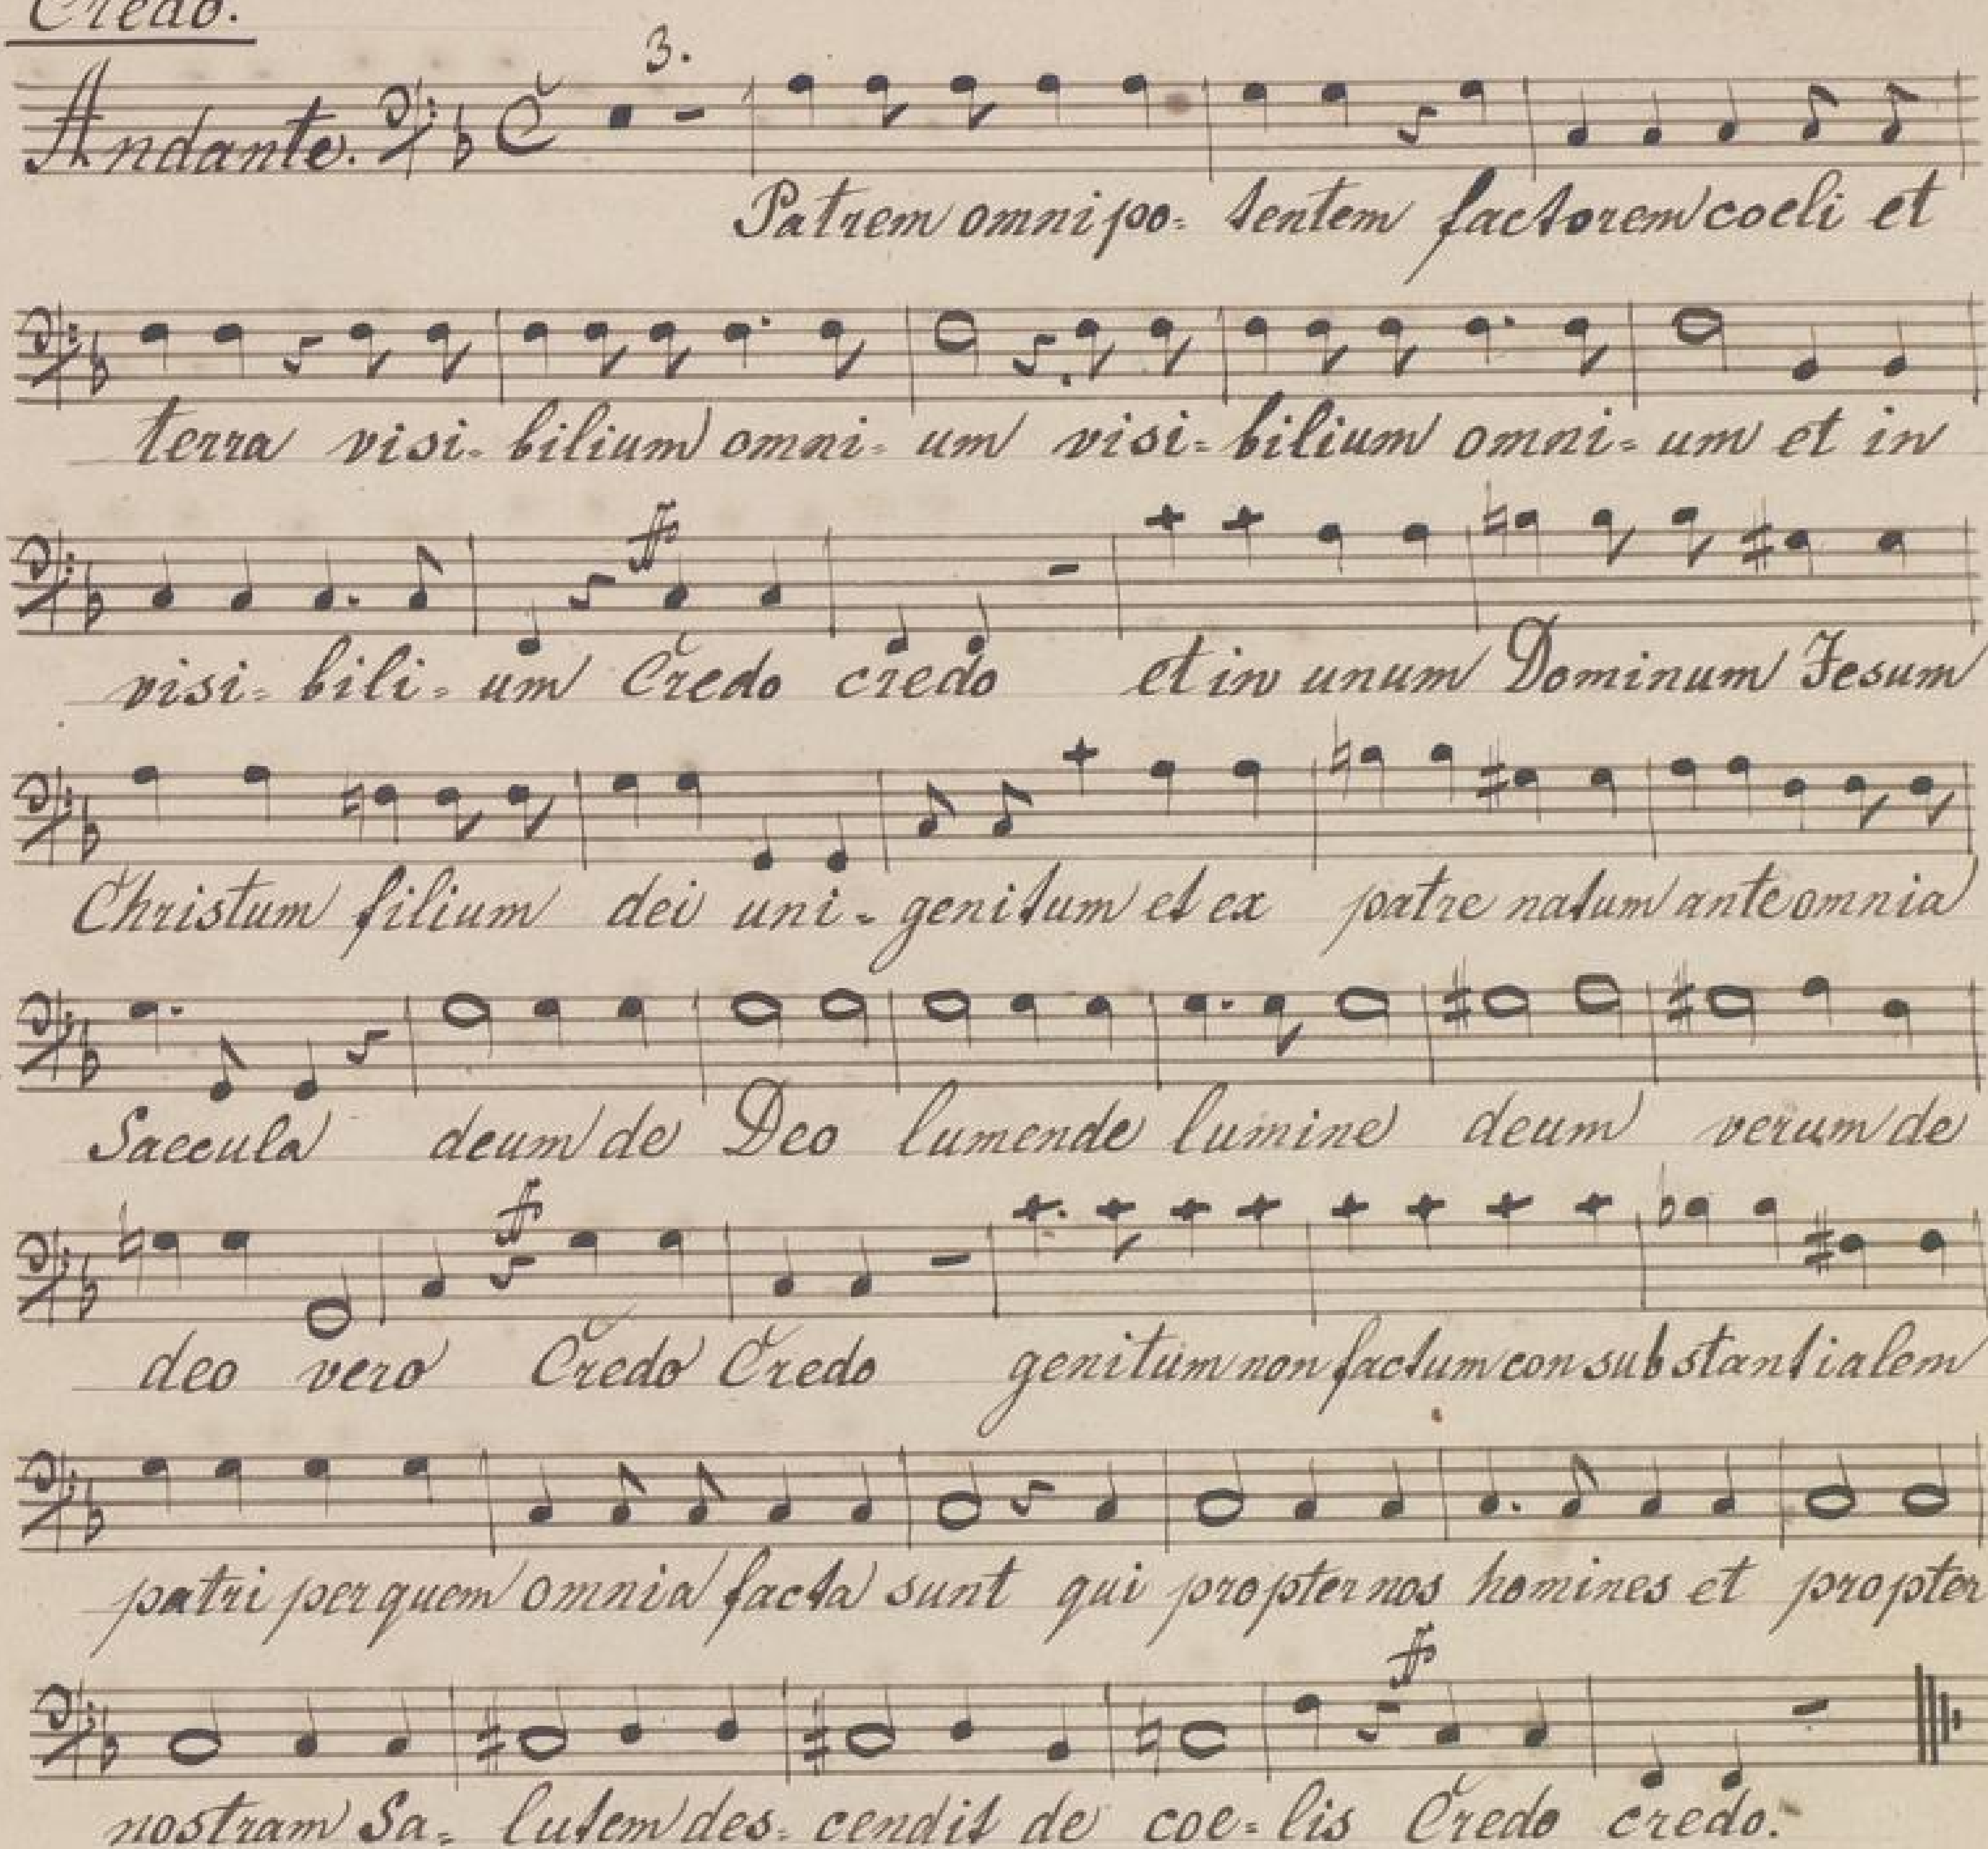 Credo.
3.
Andante.
Patrem omnipo- tentem factorem coeli et
terra visi- bilium omni- um visi- bilium omni- um et in
ff
visi- bili- um Credo credo et in unum Dominum Jesum
Christum filium dei uni- genitum et ex patre natum ante omnia
Saecula deum de Deo lumen de lumine deum verum de
f
deo vero Credo Credo genitum non factum con substantialem
patri per quem omnia facta sunt qui propter nos homines et propter
ff
nostram Sa- lutem des- cendit de coe- lis Credo credo.